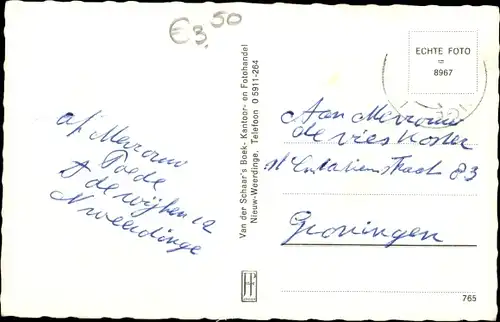 €3,50
af Mevrouw
Poede
de wijken 12
N weerdinge
Van der Schaar's Boek- Kantoor- en Fotohandel
Nieuw-Weerdinge, Telefoon 0 5911-264
ECHTE FOTO
=
8967
Aan Mevrouw
de Vries Koster
83
Groningen
765